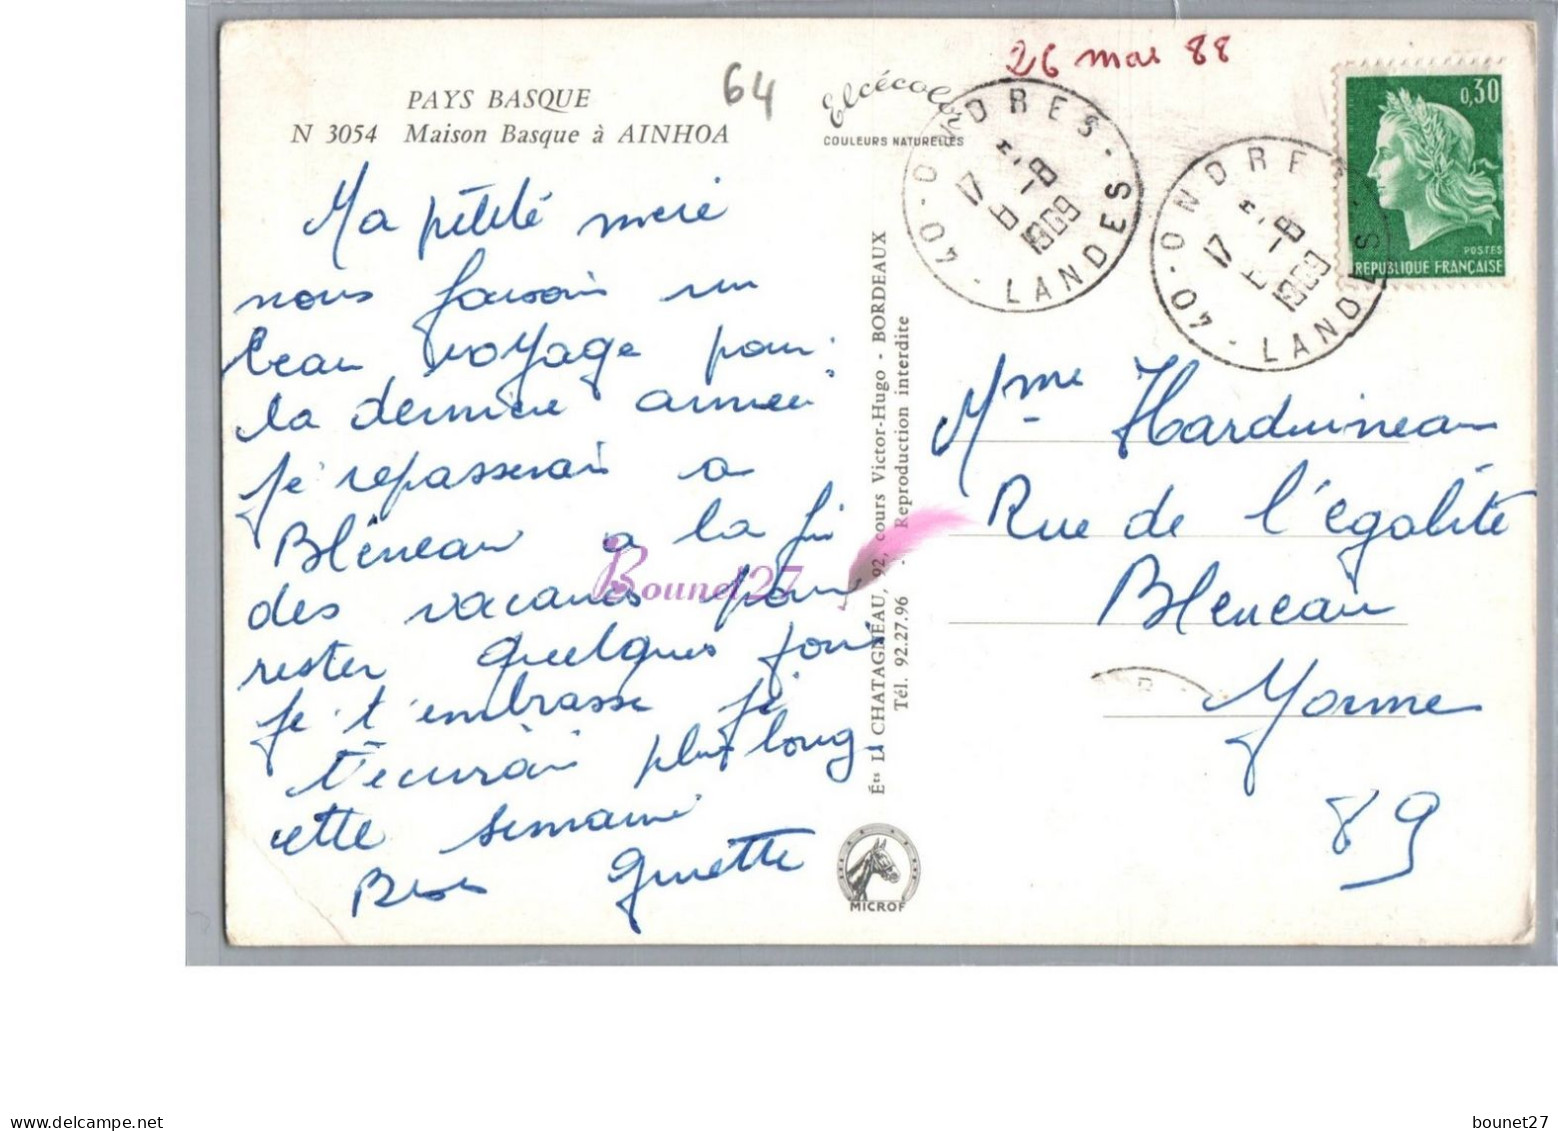 26 mai 88
64
PAYS BASQUE
N 3054 Maison Basque à AINHOA
Elcécolor
COULEURS NATURELLES
Ma petité mere
nous faisons un
beau voyage pour
la derniere année
je repasserai a
Bléneau a la fin
des vacances pour
rester quelques jours
je t'embrasse je
t'écrirai plus long
cette semaine
Bises Ginette
Éts LI CHATAGNEAU, 92, cours Victor-Hugo - BORDEAUX
Tél. 92.27.96 - Reproduction interdite
MICROF
40 - ONDRES - LANDES
17 H
6 - 8
1969
40 - ONDRES - LANDES
17 H
6 - 8
1969
0,30
POSTES
REPUBLIQUE FRANÇAISE
Mme Harduineau
Rue de l'égalité
Bleneau
Yonne
89
Bounet27
bounet27